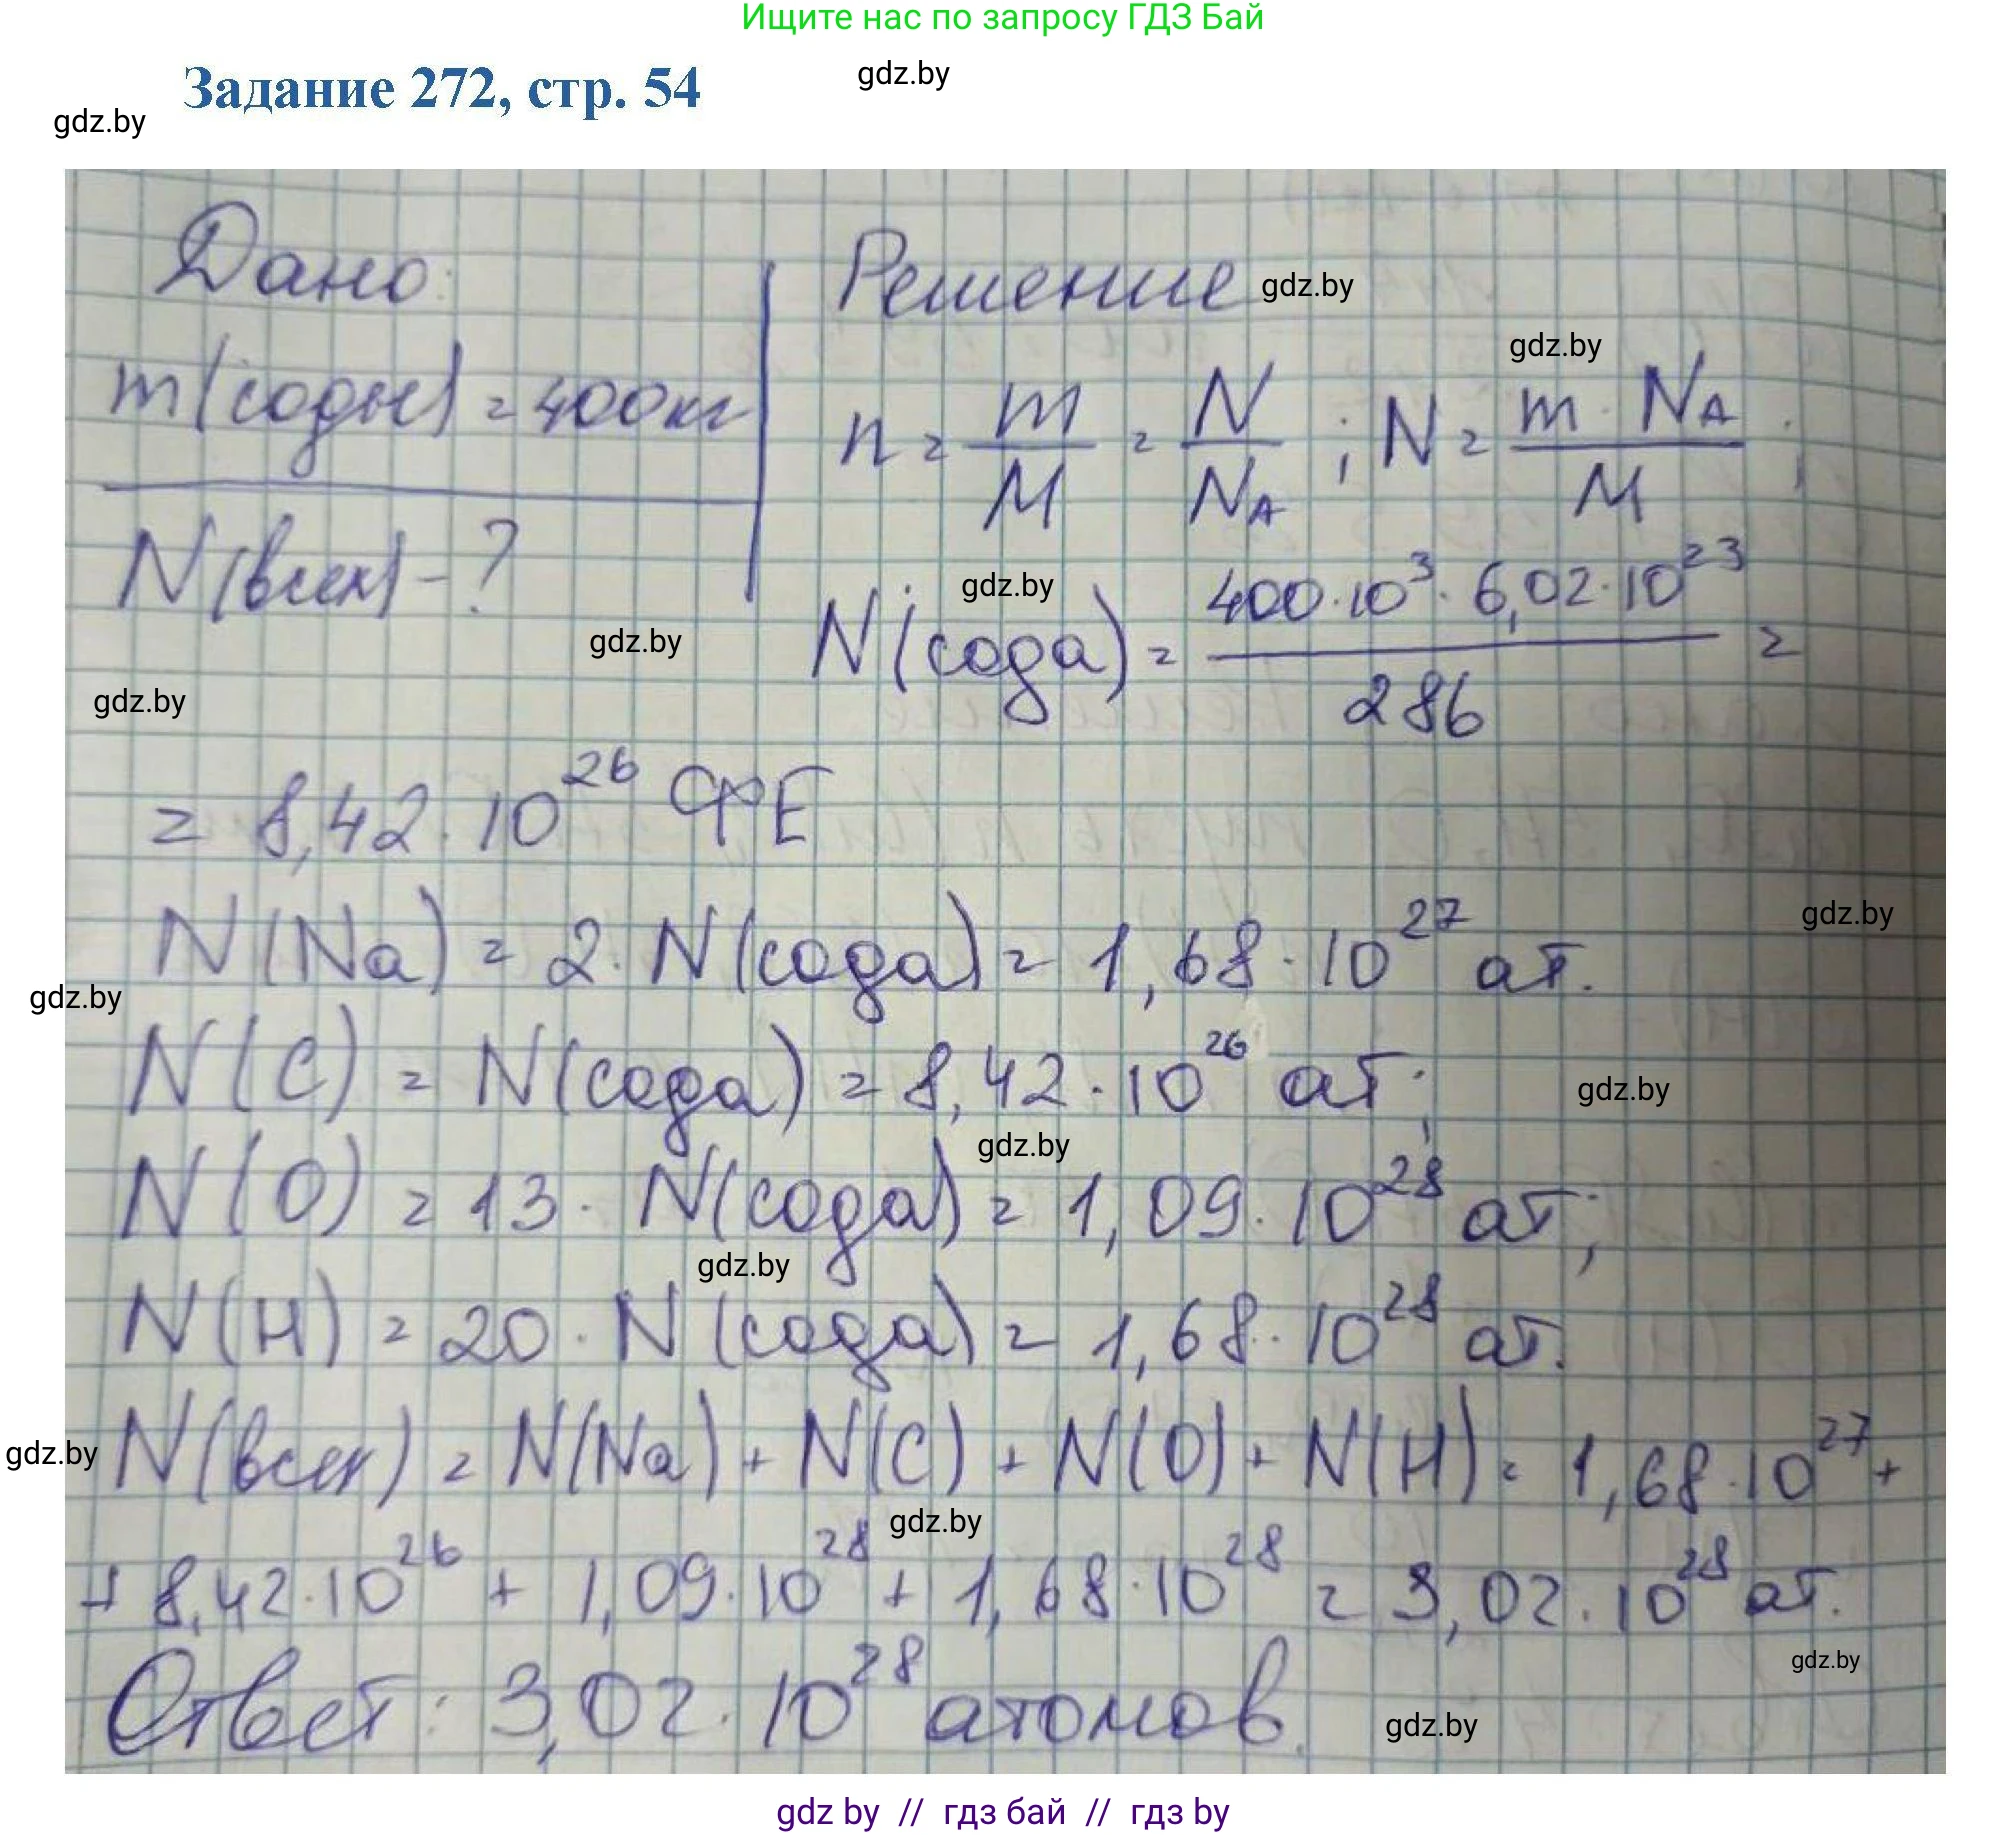 Ищите нас по запросу ГДЗ Бай
Задание 272, стр. 54
gdz.by
gdz.by
Дано:
Решение
gdz.by
gdz.by
m(соды) = 400 кг
n = m/M = N/N_A ; N = m · N_A / M ;
N(всех) - ?
gdz.by
gdz.by
N(сода) = 400·10³ · 6,02·10²³ / 286 =
gdz.by
= 8,42·10²⁶ ФЕ
N(Na) = 2·N(сода) = 1,68·10²⁷ ат.
gdz.by
gdz.by
N(C) = N(сода) = 8,42·10²⁶ ат;
gdz.by
gdz.by
N(O) = 13·N(сода) = 1,09·10²⁸ ат;
gdz.by
N(H) = 20·N(сода) = 1,68·10²⁸ ат.
gdz.by
N(всех) = N(Na) + N(C) + N(O) + N(H) = 1,68·10²⁷ +
gdz.by
+ 8,42·10²⁶ + 1,09·10²⁸ + 1,68·10²⁸ = 3,02·10²⁸ ат.
gdz.by
Ответ: 3,02·10²⁸ атомов.
gdz.by
gdz by // гдз бай // гдз by